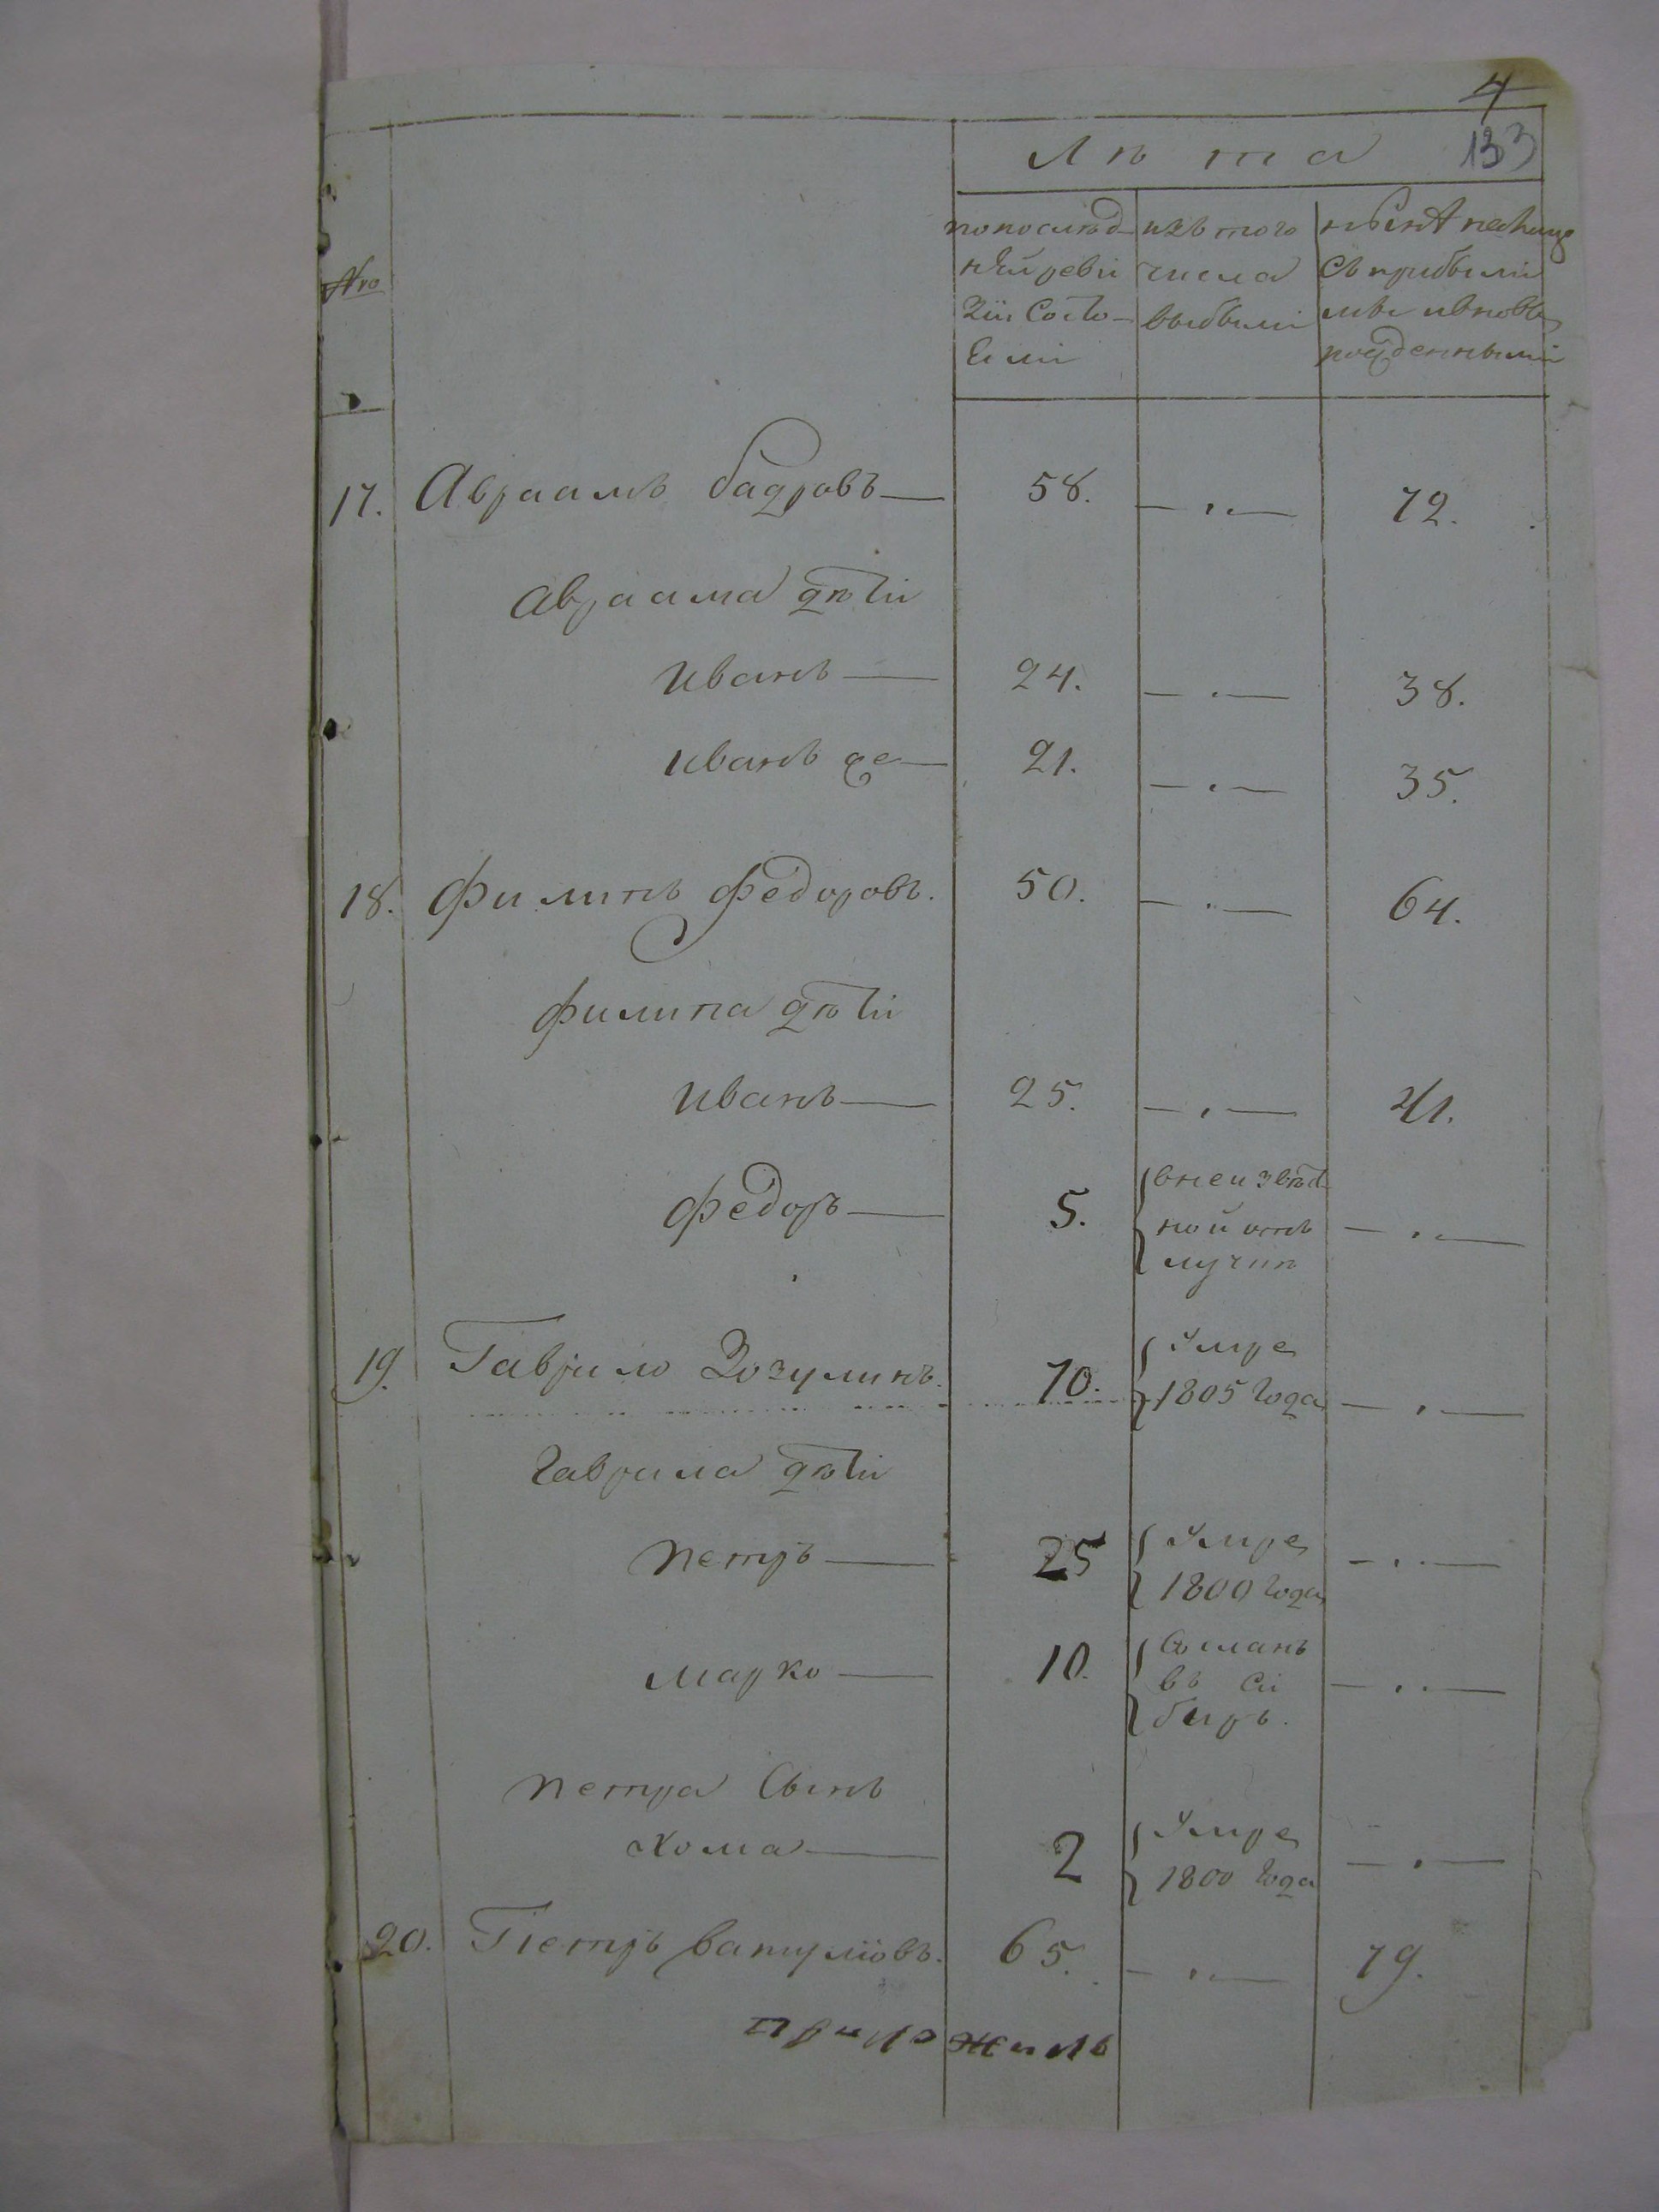 4
133
Лѣта
№
по послѣд-
нѣй реви
зіи Состо-
яли
изъ того
числа
выбыли
нынѣ налицо
съ прибылы
ми и вновь
рожденными
17. Авраамъ бадровъ— 58. —"— 72.
Авраама дѣти
Иванъ— 24. —"— 38.
Иванъ же— 21. —"— 35.
18. Филипъ Федоровъ. 50. —"— 64.
Филипа дѣти
Иванъ— 25. —"— 41.
Федоръ— 5. внеизвѣст
ной отъ
лучкѣ —"—
19. Гаврило Зозулинъ. 70. Умре
1805 года —"—
Гаврила дѣти
Петръ— 25 Умре
1800 года —"—
Марко— 10. Сосланъ
въ Си
биръ. —"—
Петра Сынъ
Хома— 2 Умре
1800 года —"—
20. Петръ Вакуловъ. 65. —"— 79.